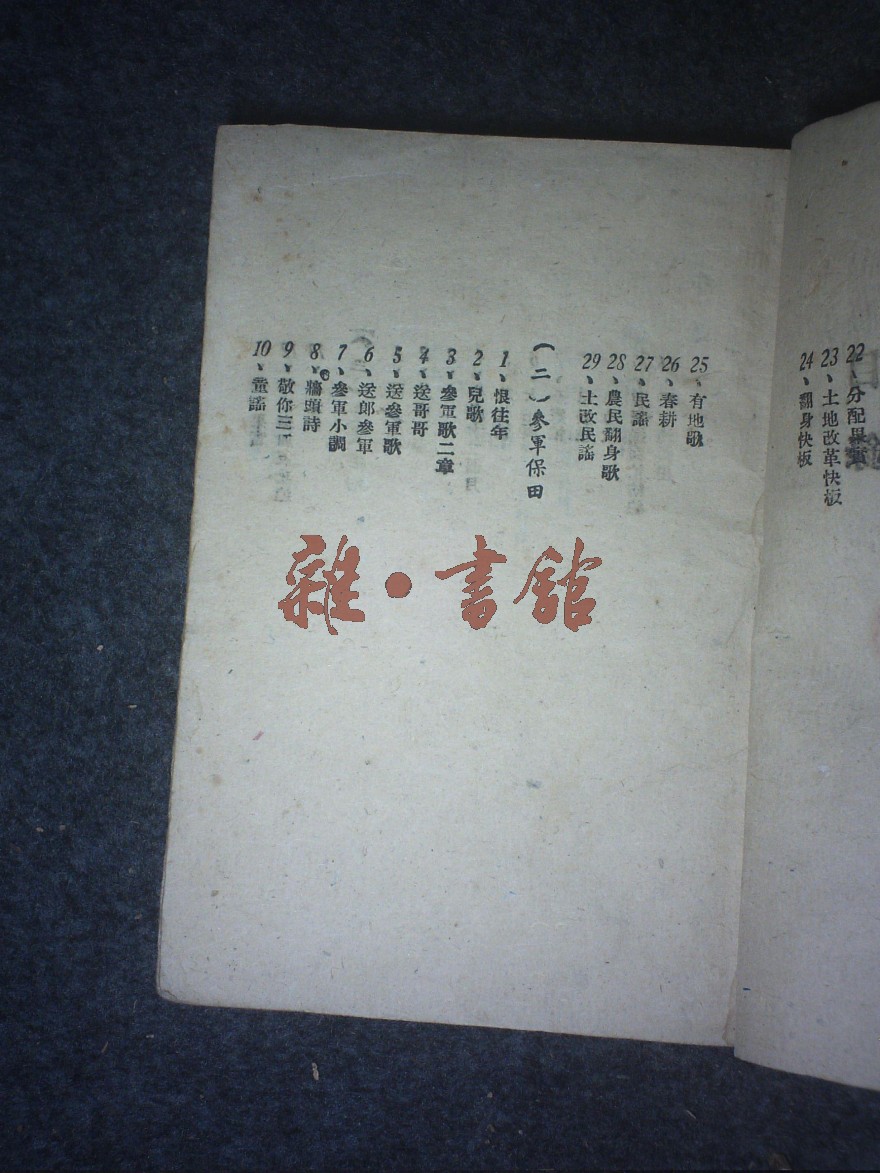 22、分配果實
23、土地改革快板
24、翻身快板
25、有地歌
26、春耕
27、民謠
28、農民翻身歌
29、土改民謠
（二）參軍保田
1、恨往年
2、兒歌
3、參軍歌二章
4、送哥哥
5、送參軍歌
6、送郎參軍
7、參軍小調
8、牆頭詩
9、敬你三
10、童謠
雜·書館